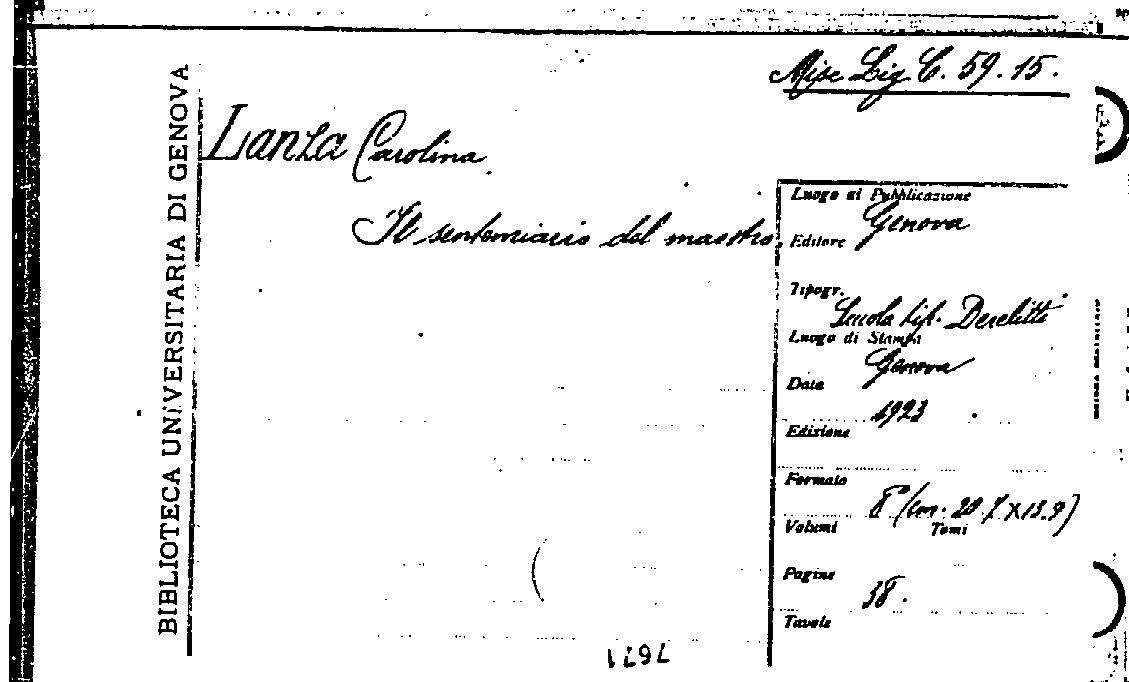 Misc Lig C. 59. 15.
BIBLIOTECA UNIVERSITARIA DI GENOVA
Lanza Carolina
Il sentenziario del maestro.
Luogo di Pubblicazione
Genova
Editore
Tipogr.
Scuola tip. Derelitti
Luogo di Stampa
Genova
Data
1923
Edizione
Formato
8° (cm. 20.7 X 13.9)
Volumi Tomi
Pagine
38.
Tavole